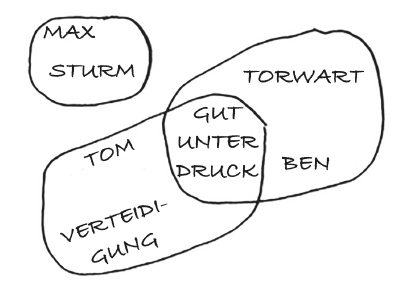 MAX
STURM
TORWART
GUT
UNTER
DRUCK
BEN
TOM
VERTEIDI-
GUNG